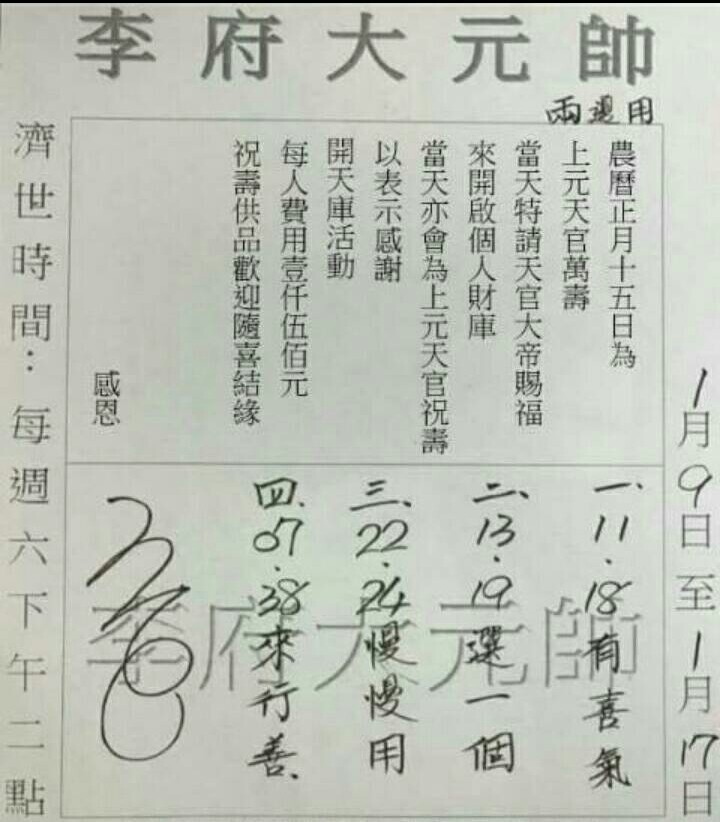 李府大元帥
兩邊用
1月9日至1月17日
農曆正月十五日為
上元天官萬壽
當天特請天官大帝賜福
來開啟個人財庫
當天亦會為上元天官祝壽
以表示感謝
開天庫活動
每人費用壹仟伍佰元
祝壽供品歡迎隨喜結緣
感恩
一、11.18有喜氣
二、13.19選一個
三、22.24慢慢用
四、07.38來行善、
李府大元帥
濟世時間：每週六下午二點